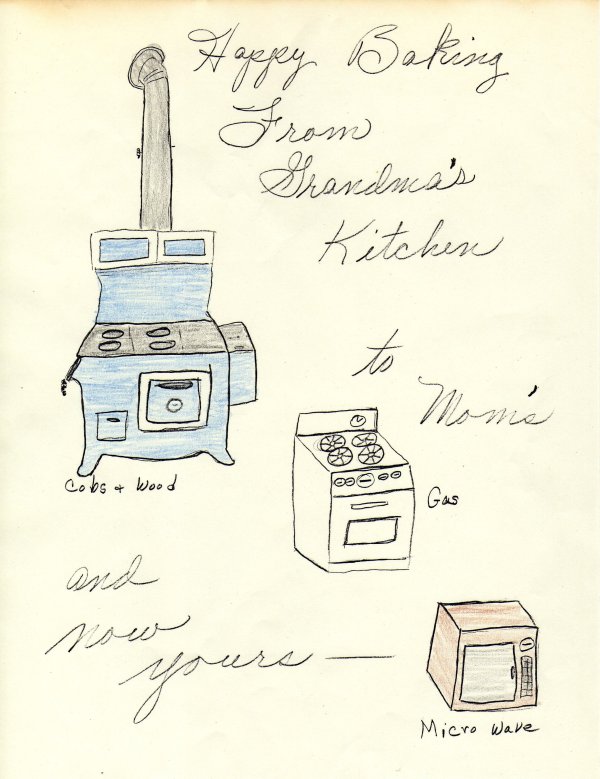 Happy Baking
From
Grandma's
Kitchen
to
Mom's
Cobs + Wood
Gas
and
now
yours —
Micro Wave